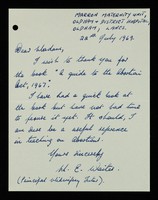 MARRON MATERNITY UNIT,
OLDHAM & DISTRICT HOSPITAL
OLDHAM, LANCS.
22nd July 1969.
Dear Madam,
I wish to thank you for
the book "A guide to the Abortion
Act, 1967".
I have had a quick look at
the book but have not had time
to peruse it yet. It should, I
am sure be a useful reference
in teaching on abortion.
Yours sincerely
M. E. Waites.
(Principal Midwifery Tutor).